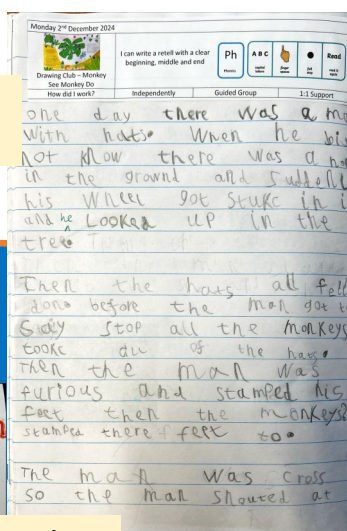 Monday 2nd December 2024
Drawing Club – Monkey
See Monkey Do
I can write a retell with a clear
beginning, middle and end
Ph
Phonics
A B C
capital
letters
finger
spaces
full
stop
Read
read it
again
How did I work?
Independently
Guided Group
1:1 Support
one day there was a
with hats. When he
not know there was a
in the grownd and
his wheel got stukc in
and he Looked up in the
tree.
Then the hats all fell
before the man got
Say stop all the monkeys
tookc all of the hats.
Then the man was
furious and stamped his
feet then the monkeys
stamped there feet too.
The man was cross
so the man shouted at